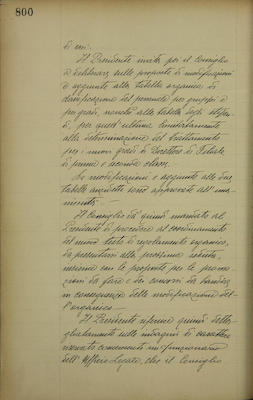 800
di cui.
Il Presidente invita poi il Consiglio
a deliberare sulle proposte di modificazioni
e aggiunte alla tabella organica di
classificazione del personale per gruppi e
per gradi, nonché alla tabella degli stipen-
di, per quest'ultima limitatamente
alla determinazione del trattamento
per i nuovi gradi di Direttore di Filiale
di prima e seconda classe.
Le modificazioni e aggiunte alle due
tabelle anzidette sono approvate all'una-
nimità.
Il Consiglio dà quindi mandato al
Presidente di procedere al coordinamento
del nuovo testo di regolamento organico,
da presentarsi alla prossima seduta,
insieme con le proposte per le promo-
zioni da fare e da concorsi da bandire
in conseguenza delle modificazioni del-
l'organico.
Il Presidente riferisce quindi detta-
gliatamente sulle indagini di carattere
riservato concernenti un funzionario
dell'Ufficio Legale, che il Consiglio